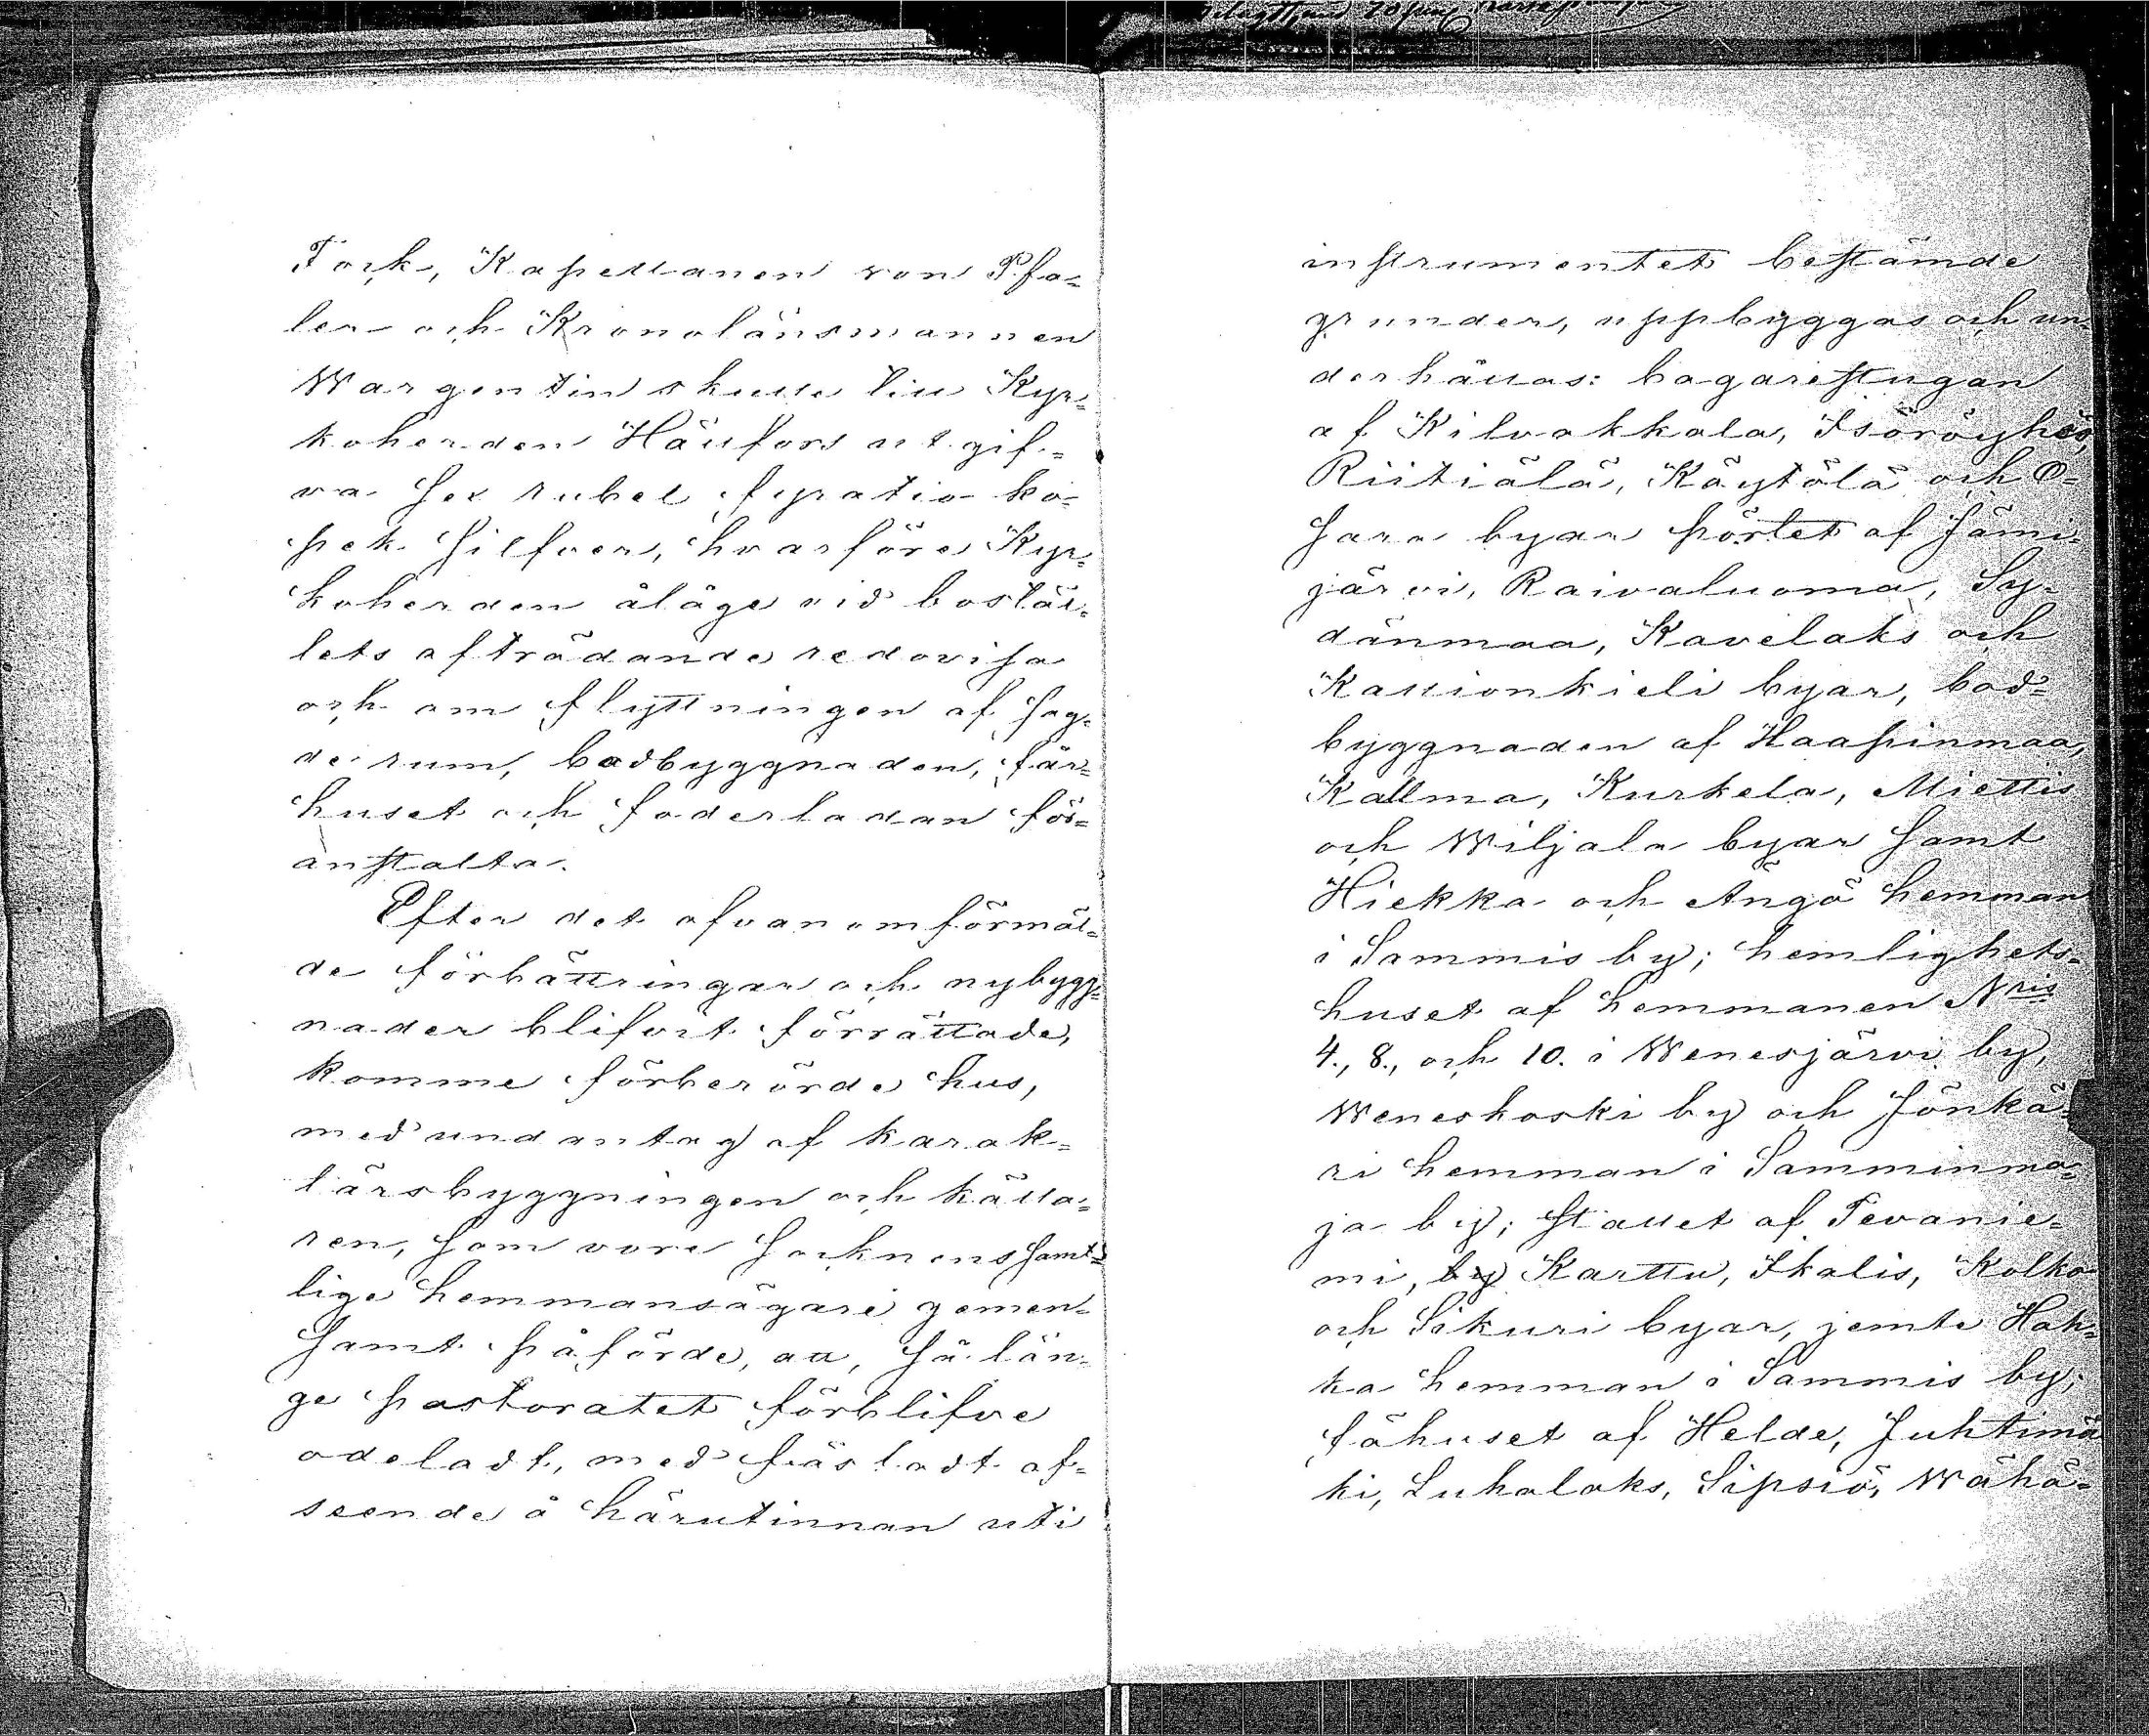 Fork, Kapellanen von Pfa=
ler och Kronolänsmannen
Wargentin skulle till Kyr=
koherden Hällfors utgif=
va sex rubel fyratio ko=
pek silfver, hvarföre Kyr=
koherden ålåge vid bostäl=
lets afträdande redovisa
och om flyttningen af sag=
de rum, bodbyggnaden, får=
huset och foderladan för=
anstalta.
Efter det ofvanomförmäl=
de förbättringar och nybygg=
nader blifvit förrättade,
komme förberörde hus,
med undantag af karak=
tärsbyggningen och källa=
ren, som vore Socknens samt=
lige hemmansägare gemen=
samt påförde, att, så län=
ge pastoratet förblifve
odeladt, med fästadt af=
seende å härutinnan uti
instrumentet bestämde
grunder, uppbyggas och un=
derhållas: bagarestugan
af Kilvakkala, Isoröyhiö,
Riitiälä, Käytölä och O=
sara byar pörtet af Jämi=
järvi, Raivaluoma, Sy=
dänmaa, Kavelaks och
Kallionkieli byar, bod=
byggnaden af Haapinmaa,
Kallma, Kurkela, Miettis
och Wiljala byar samt
Hiekka och Ängö hemman
i Sammis by; hemlighets=
huset af hemmanen Nris
4., 8., och 10. i Wenesjärvi by,
Weneskoski by och Jönkä=
ri hemman i Samminma=
ja by; stallet af Tevanie=
mi, by Karttu, Ikalis, Kolko
och Sikuri byar, jemte Hak=
ka hemman i Sammis by;
fähuset af Helde, Juhtimä
ki, Luhalaks, Sipsiö, Wähä=